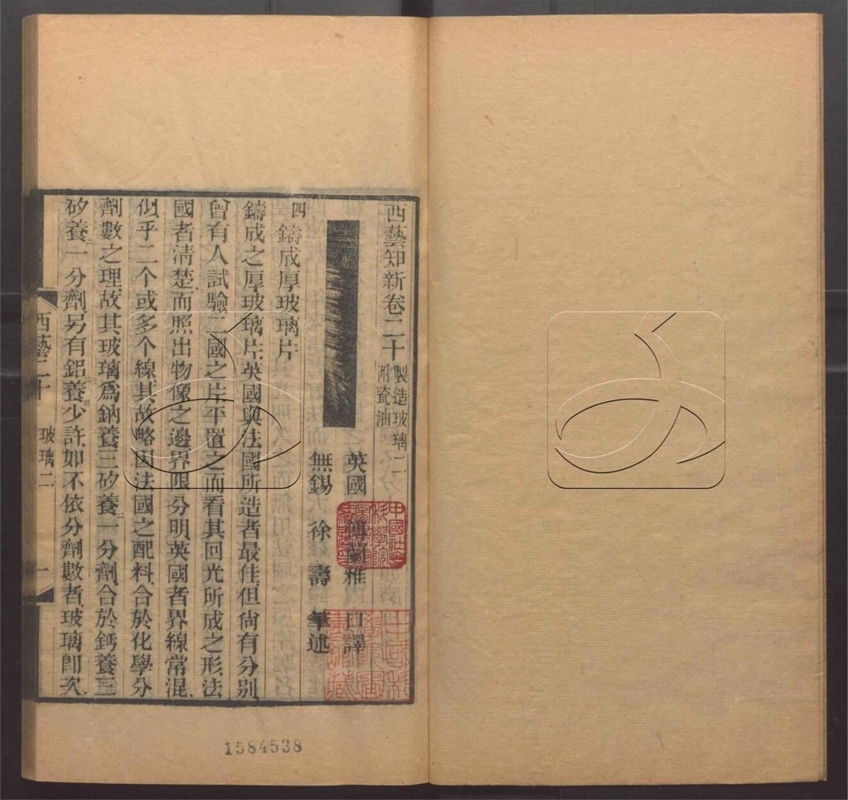 西藝知新卷二十 製造玻璃二
附瓷油
英國 傅蘭雅 口譯
無錫 徐壽 筆述
四 鑄成厚玻璃片
鑄成之厚玻璃片英國與法國所造者最佳但尙有分別
曾有人試驗二國之片平置之而看其回光所成之形法
國者清楚而照出物像之邊界限分明英國者界線常混
似乎二个或多个線其故略因法國之配料合於化學分
劑數之理故其玻璃爲鈉養三矽養一分劑合於鈣養三
矽養一分劑另有鋁養少許如不依分劑數者玻璃卽次
西藝二十 玻璃二 一
1584538